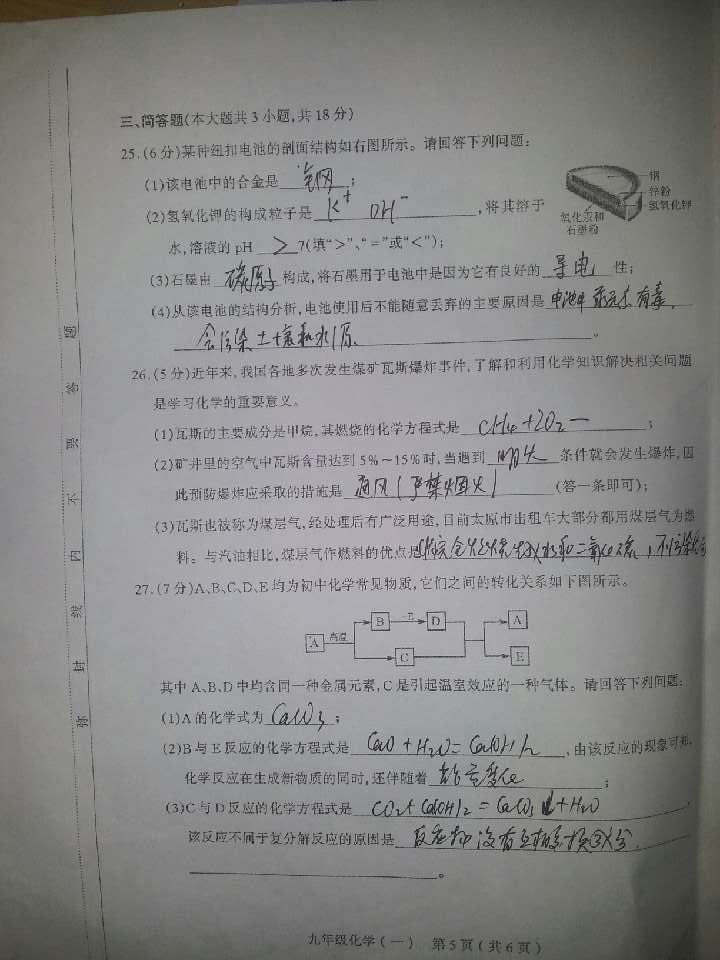 三、简答题(本大题共3小题,共18分)
25.(6分)某种纽扣电池的剖面结构如右图所示。请回答下列问题:
(1)该电池中的合金是 钢;
钢
锌粉
氢氧化钾
氧化汞和
石墨粉
(2)氢氧化钾的构成粒子是 K⁺ OH⁻ ,将其溶于
水,溶液的pH > 7(填“>”、“=”或“<”);
(3)石墨由 碳原子 构成,将石墨用于电池中是因为它有良好的 导电 性;
(4)从该电池的结构分析,电池使用后不能随意丢弃的主要原因是 电池中汞元素有毒,
会污染土壤和水源 。
26.(5分)近年来,我国各地多次发生煤矿瓦斯爆炸事件,了解和利用化学知识解决相关问题
是学习化学的重要意义。
(1)瓦斯的主要成分是甲烷,其燃烧的化学方程式是 CH4+2O2一 ;
(2)矿井里的空气中瓦斯含量达到5%~15%时,当遇到 明火 条件就会发生爆炸,因
此预防爆炸应采取的措施是 通风(严禁烟火) (答一条即可);
(3)瓦斯也被称为煤层气,经处理后有广泛用途,目前太原市出租车大部分都用煤层气为燃
料。与汽油相比,煤层气作燃料的优点是 水和二氧化碳,不污染
27.(7分)A、B、C、D、E均为初中化学常见物质,它们之间的转化关系如下图所示。
A 高温 B E D C A E
其中A、B、D中均含同一种金属元素,C是引起温室效应的一种气体。请回答下列问题:
(1)A的化学式为 CaCO3 ;
(2)B与E反应的化学方程式是 CaO + H2O = Ca(OH)2 ,由该反应的现象可知,
化学反应在生成新物质的同时,还伴随着 能量变化 ;
(3)C与D反应的化学方程式是 CO2+Ca(OH)2 = CaCO3↓+H2O ,
该反应不属于复分解反应的原因是 反应物没有互相交换成分.
。
九年级化学(一) 第5页(共6页)
题
答
要
不
内
线
封
弥